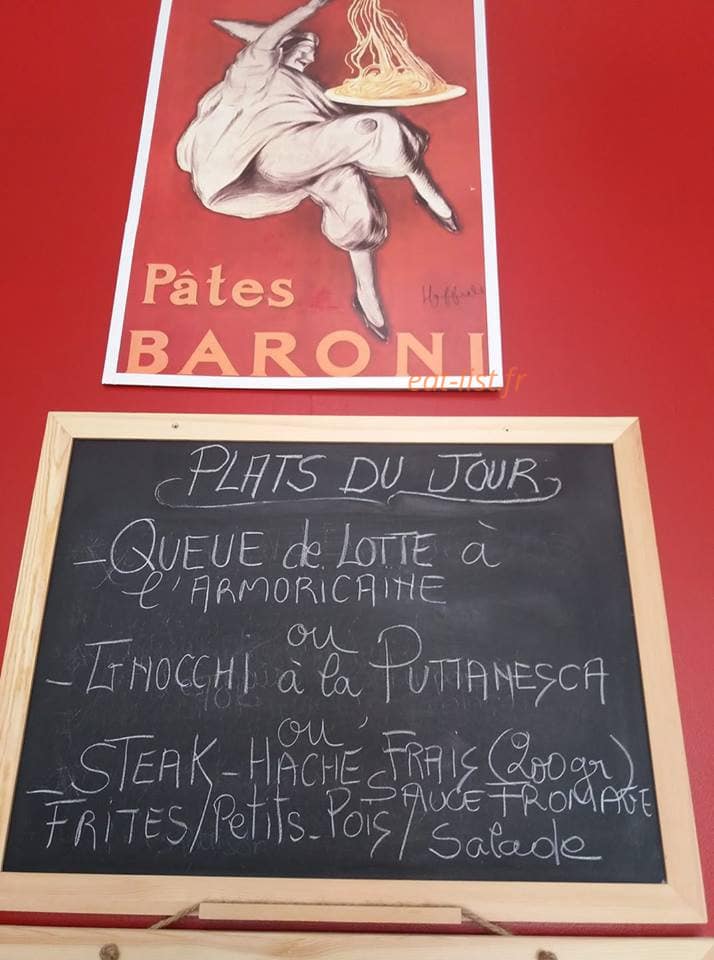 Pâtes
BARONI
eat-list.fr
PLATS DU JOUR
- QUEUE de LOTTE à
l'ARMORICAINE
ou
- GNOCCHI à la PUTTANESCA
ou
- STEAK-HACHÉ FRAIS (200gr)
SAUCE FROMAGE
FRITES/Petits-Pois/
Salade